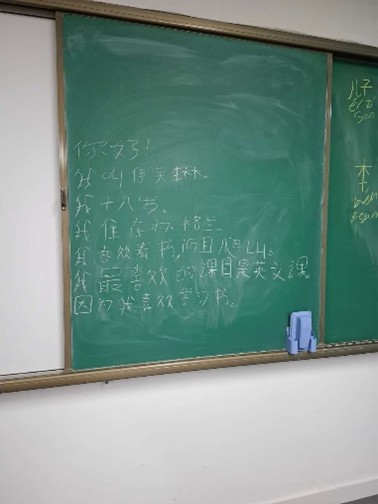 你好!
我叫
我十八岁。
我住在苏格兰。
我喜欢看书,而且爬山。
我最喜欢的课目是英文课。
因为我喜欢学习书。
儿子
ér zi
son